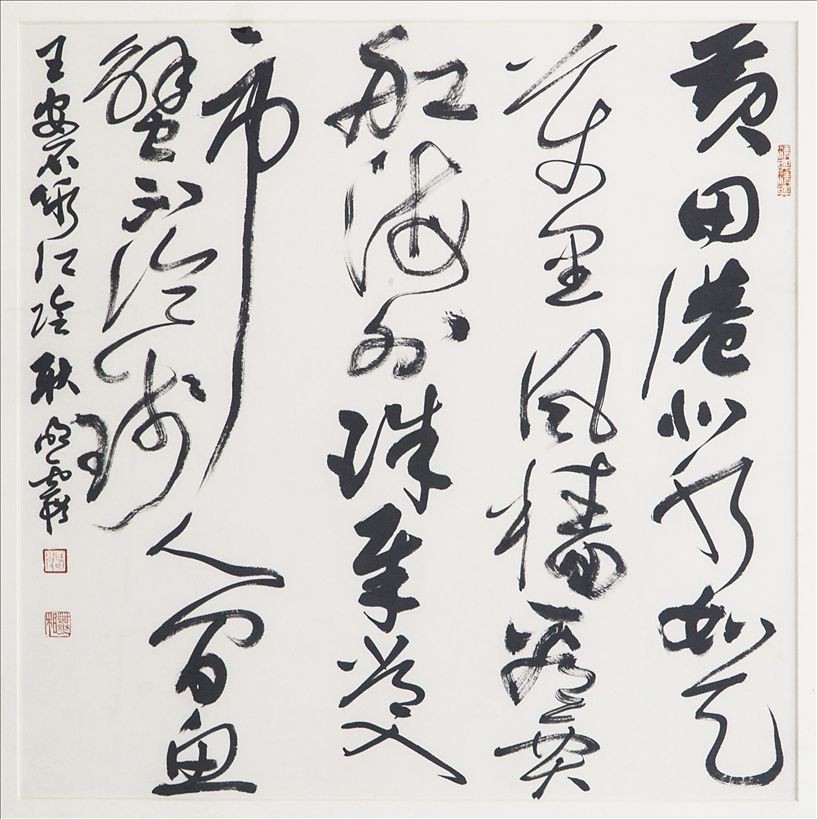 黄田港北水如天
萬里风樯看贾
船海外珠犀常入
市人间鱼
蟹不论钱
王安石 江阴 耿